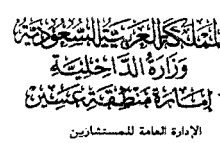 المملكة العربية السعودية
وزارة الداخلية
إمارة منطقة عسير
الإدارة العامة للمستشارين